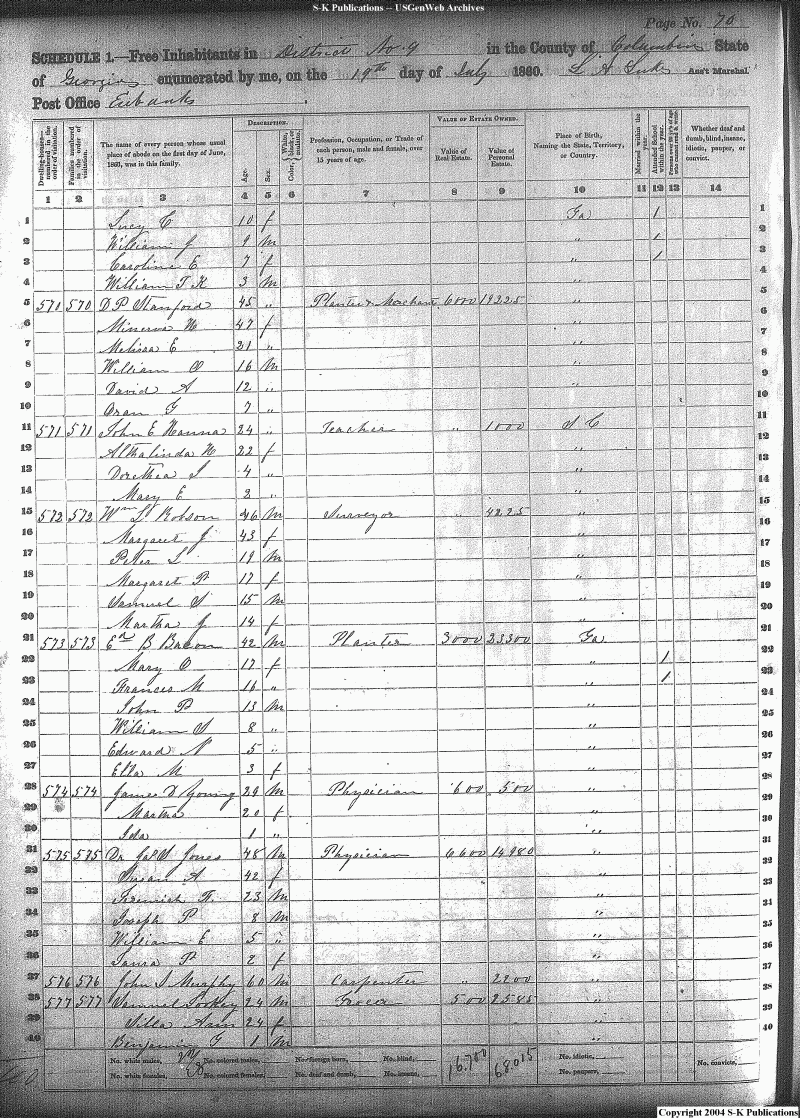 S-K Publications -- USGenWeb Archives
Page No. 70
SCHEDULE 1.—Free Inhabitants in District No. 9 in the County of Columbia State
of Georgia enumerated by me, on the 19th day of July 1860. Ass't Marshal.
Post Office Eubanks
Dwelling-houses—numbered in the order of visitation.
Families numbered in the order of visitation.
The name of every person whose usual place of abode on the first day of June, 1860, was in this family.
DESCRIPTION.
Age.
Sex.
Color, White, black, or mulatto.
Profession, Occupation, or Trade of each person, male and female, over 15 years of age.
VALUE OF ESTATE OWNED.
Value of Real Estate.
Value of Personal Estate.
Place of Birth, Naming the State, Territory, or Country.
Married within the year.
Attended School within the year.
Whether deaf and dumb, blind, insane, idiotic, pauper, or convict.
1 2 3 4 5 6 7 8 9 10 11 12 13 14
1 Lucy C 10 f Ga / 1
2 William J 9 m " / 2
3 Caroline E 7 f " / 3
4 William T K 3 m " 4
5 571 570 D P Stanford 45 " Planter & Merchant 6000 19225 " 5
6 Minerva W 47 f " 6
7 Melissa E 21 " " 7
8 William O 16 m " 8
9 David A 12 " " 9
10 Oran G 7 " " 10
11 571 571 John E Hanna 24 " Teacher " 1000 S C 11
12 Althalinda H 22 f " 12
13 Dorethea S 4 " " 13
14 Mary E 2 " " 14
15 572 572 Wm S Robson 46 m Surveyor " 4225 " 15
16 Margaret J 43 f " 16
17 Peter L 19 m " 17
18 Margaret P 17 f " 18
19 Samuel S 15 m " 19
20 Martha J 14 f " 20
21 573 573 B Bacon 42 m Planter 3000 23300 Ga 21
22 Mary O 17 f " / 22
23 Frances M 16 " " / 23
24 John P 13 m " 24
25 William S 8 " " 25
26 Edward N 5 " " 26
27 Ella M 3 f " 27
28 574 574 James D Young 29 m Physician 600 500 " 28
29 Martha 20 f " 29
30 Ida 1 " " 30
31 575 575 Dr Jas S Jones 48 m Physician 6600 14980 " 31
32 Susan A 42 f " 32
33 Jeremiah 23 m " 33
34 Joseph P 8 m " 34
35 William E 5 " " 35
36 Laura P 2 f " 36
37 576 576 John S Murphy 60 m Carpenter " 2200 " 37
38 577 577 Samuel 24 m 500 2585 " 38
39 Ann 24 f " 39
40 Benjamin G 1 m " 40
No. white males, No. colored males, No. foreign born, No. blind, 16.700 68.015 No. idiotic,
No. white females, No. colored females, No. deaf and dumb, No. insane, No. paupers, No. convicts,
Copyright 2004 S-K Publications